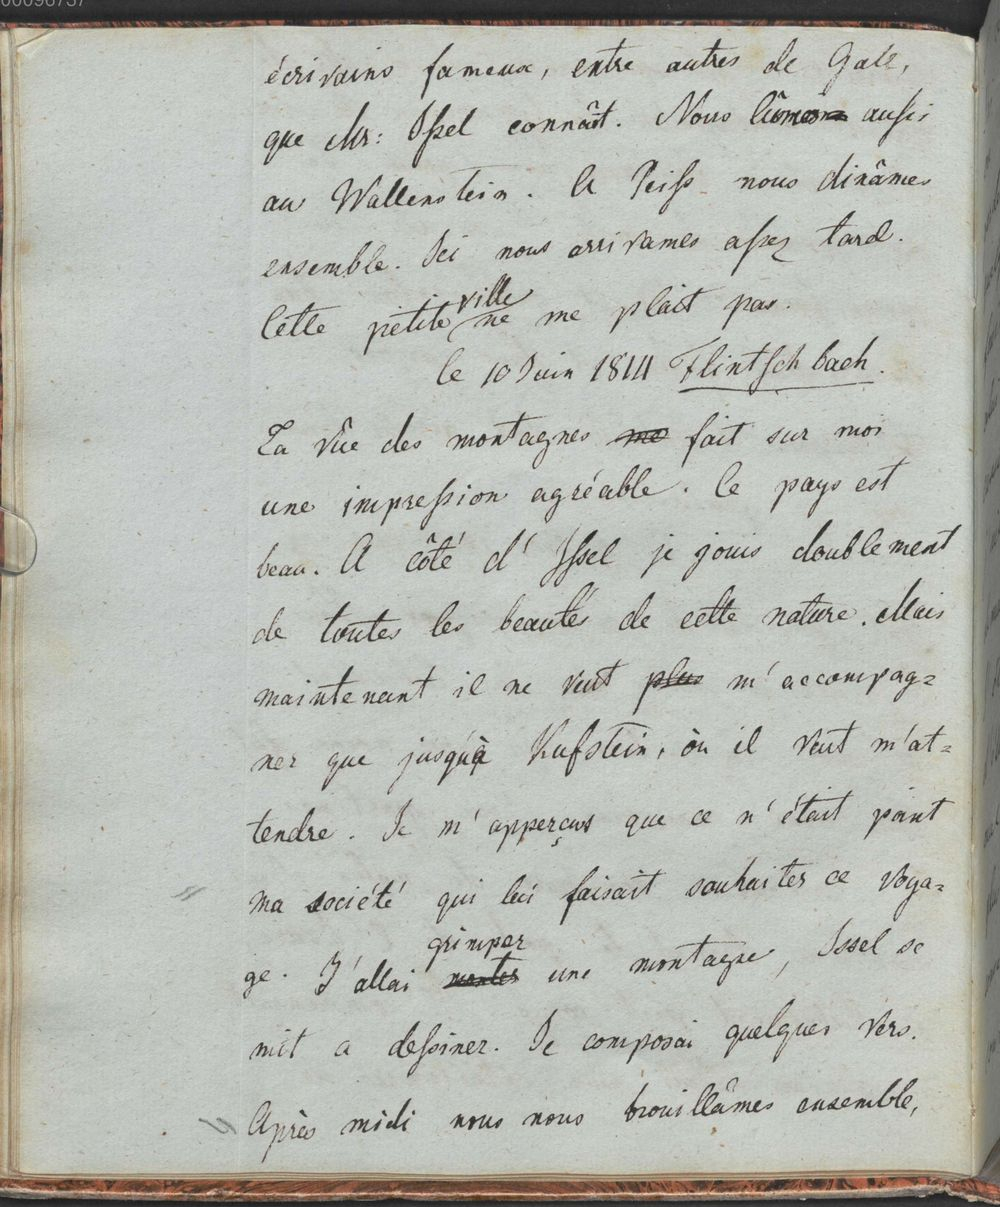 00096737
écrivains fameux, entre autres de Gall,
que Mr: Issel connaît. Nous lûmes aussi
au Wallenstein. A Peiss nous dinâmes
ensemble. Ici nous arrivames assez tard.
ville
Cette petite ne me plait pas.
le 10 Juin 1814 Flintschbach.
La vûe des montagnes me fait sur moi
une impression agréable. Ce pays est
beau. A côté d'Issel je jouis doublement
de toutes les beautés de cette nature. Mais
maintenant il ne veut plus m'accompag=
ner que jusqu'à Kufstein, òu il veut m'at=
tendre. Je m'apperçus que ce n'était point
ma société qui lui faisait souhaiter ce voya=
grimper
ge. J'allai monter une montagne, Issel se
mit a dessiner. Je composai quelques vers.
Après midi nous nous brouillâmes ensemble,